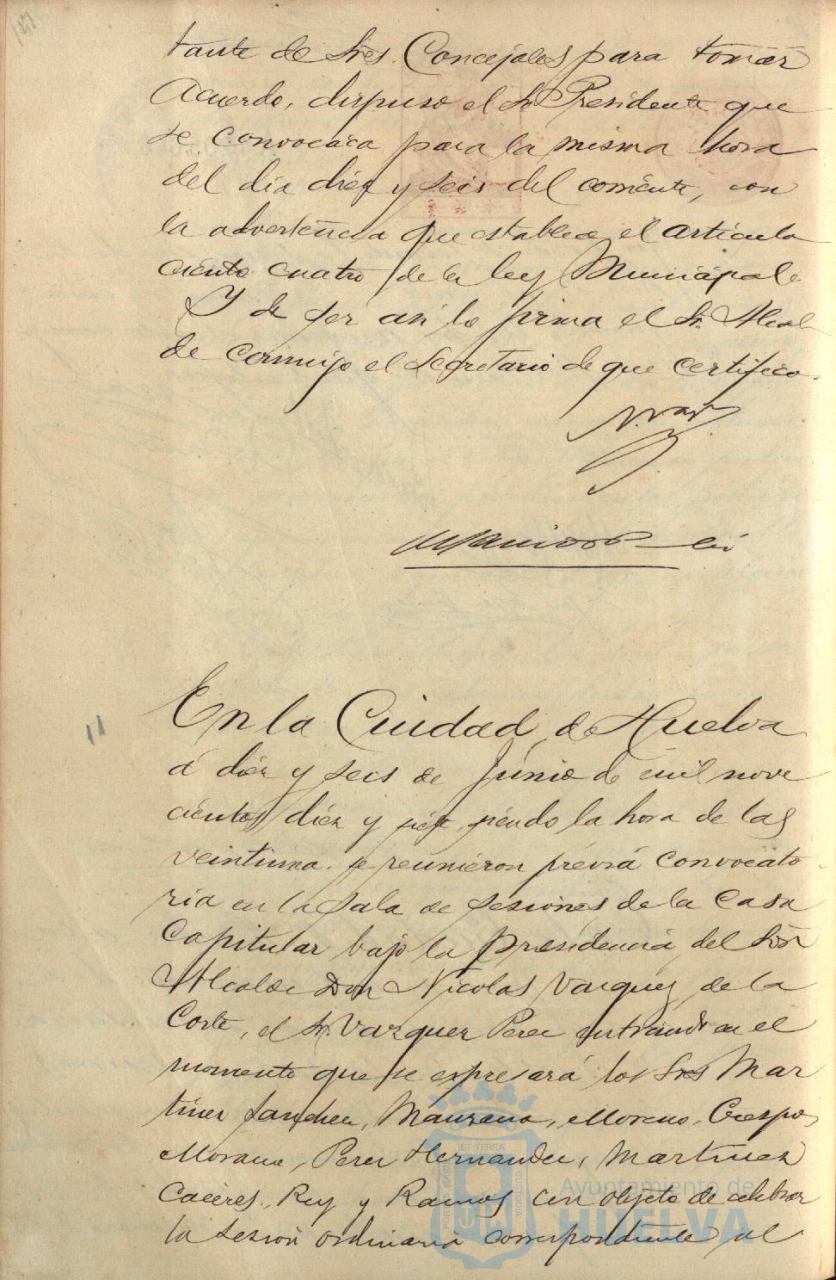 tante de Sres. Concejales para tomar
acuerdo, dispuso el Sr. Presidente que
se convocara para la misma hora
del dia diez y seis del corriente, con
la advertencia que establece el articulo
ciento cuatro de la ley Municipal.
Y de ser asi lo firma el Sr. Alcal
de conmigo el Secretario de que certifico.
En la Ciudad de Huelva
á diez y seis de Junio de mil nove
cientos diez y siendo la hora de las
veintiuna, se reunieron prévia convocato
ria en la sala de sesiones de la Casa
Capitular bajo la presidencia del Señor
Alcalde Don Nicolas Vazquez de la
Corte, el Sr. Vazquez Perez entrando en el
momento que se expresará los Sres Mar
tinez Sanchez, Manzano, Moreno, Crespo,
Morano, Perez Hernandez, Martinez
Caceres, Rey y Ramos con objeto de celebrar
la sesion ordinaria correspondiente al
Ayuntamiento de
HUELVA